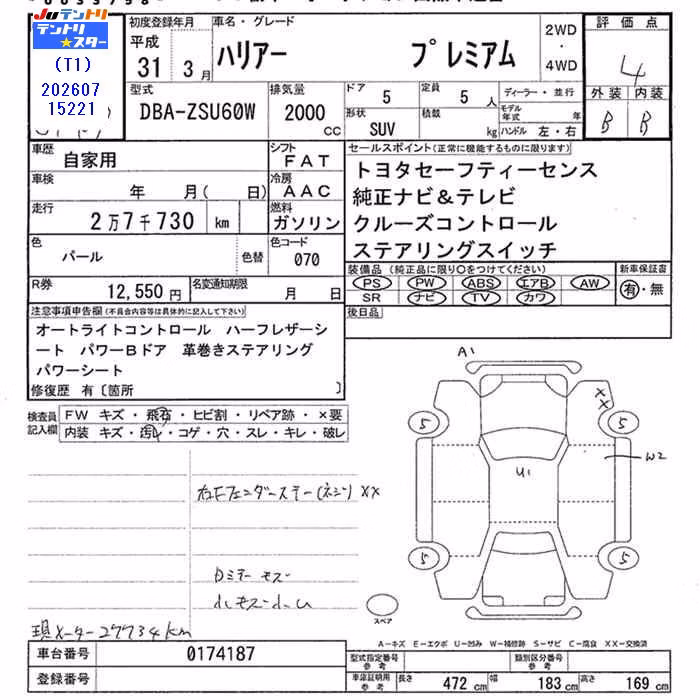 Juテントリ
テントリ★スター
(T1)
202607
15221
初度登録年月
平成
31 3 月
車名・グレード
ハリアー プレミアム
2WD
・
4WD
評価点
4
外装 内装
B B
型式
DBA-ZSU60W
排気量
2000
CC
ドア
5
定員
5 人
形状
SUV
積数
kg
ディーラー・並行
モデル年式 年
ハンドル 左・右
車歴
自家用
シフト
FAT
車検
年 月( 日)
冷房
AAC
走行
2万7千730 km
燃料
ガソリン
色
パール
色替
色コード
070
R券
12,550 円
名変通知期限
月 日
セールスポイント(正常に機能するものに限ります)
トヨタセーフティーセンス
純正ナビ&テレビ
クルーズコントロール
ステアリングスイッチ
装備品 (純正品に限り○をつけてください)
PS PW ABS エアB AW
SR ナビ TV カワ
新車保証書
有・無
後日品
注意事項申告欄(不具合内容等は具体的に記入して下さい)
オートライトコントロール ハーフレザーシ
ート パワーBドア 革巻きステアリング
パワーシート
修復歴 有〔箇所 〕
検査員記入欄
FW キズ・飛石・ヒビ割・リペア跡・×要
内装 キズ・汚レ・コゲ・穴・スレ・キレ・破レ
右Fフェンダーステー(ネジ) XX
現メーター27734km
A1
XX
5 5
U1
W2
5 5
スペア
A-キズ E-エクボ U-凹み W-補修跡 S-サビ C-腐食 XX-交換済
車台番号
0174187
登録番号
型式指定番号 参考
類別区分番号 参考
車庫証明用 参考
長さ 472 cm
幅 183 cm
高さ 169 cm